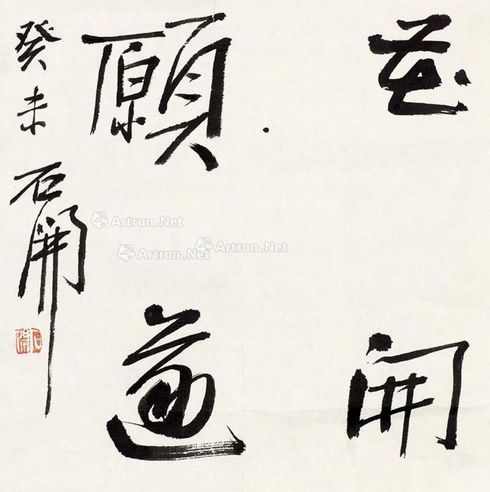 花開
願遂
癸未 石開
Artron.Net
Artron.Net
Artron.Net